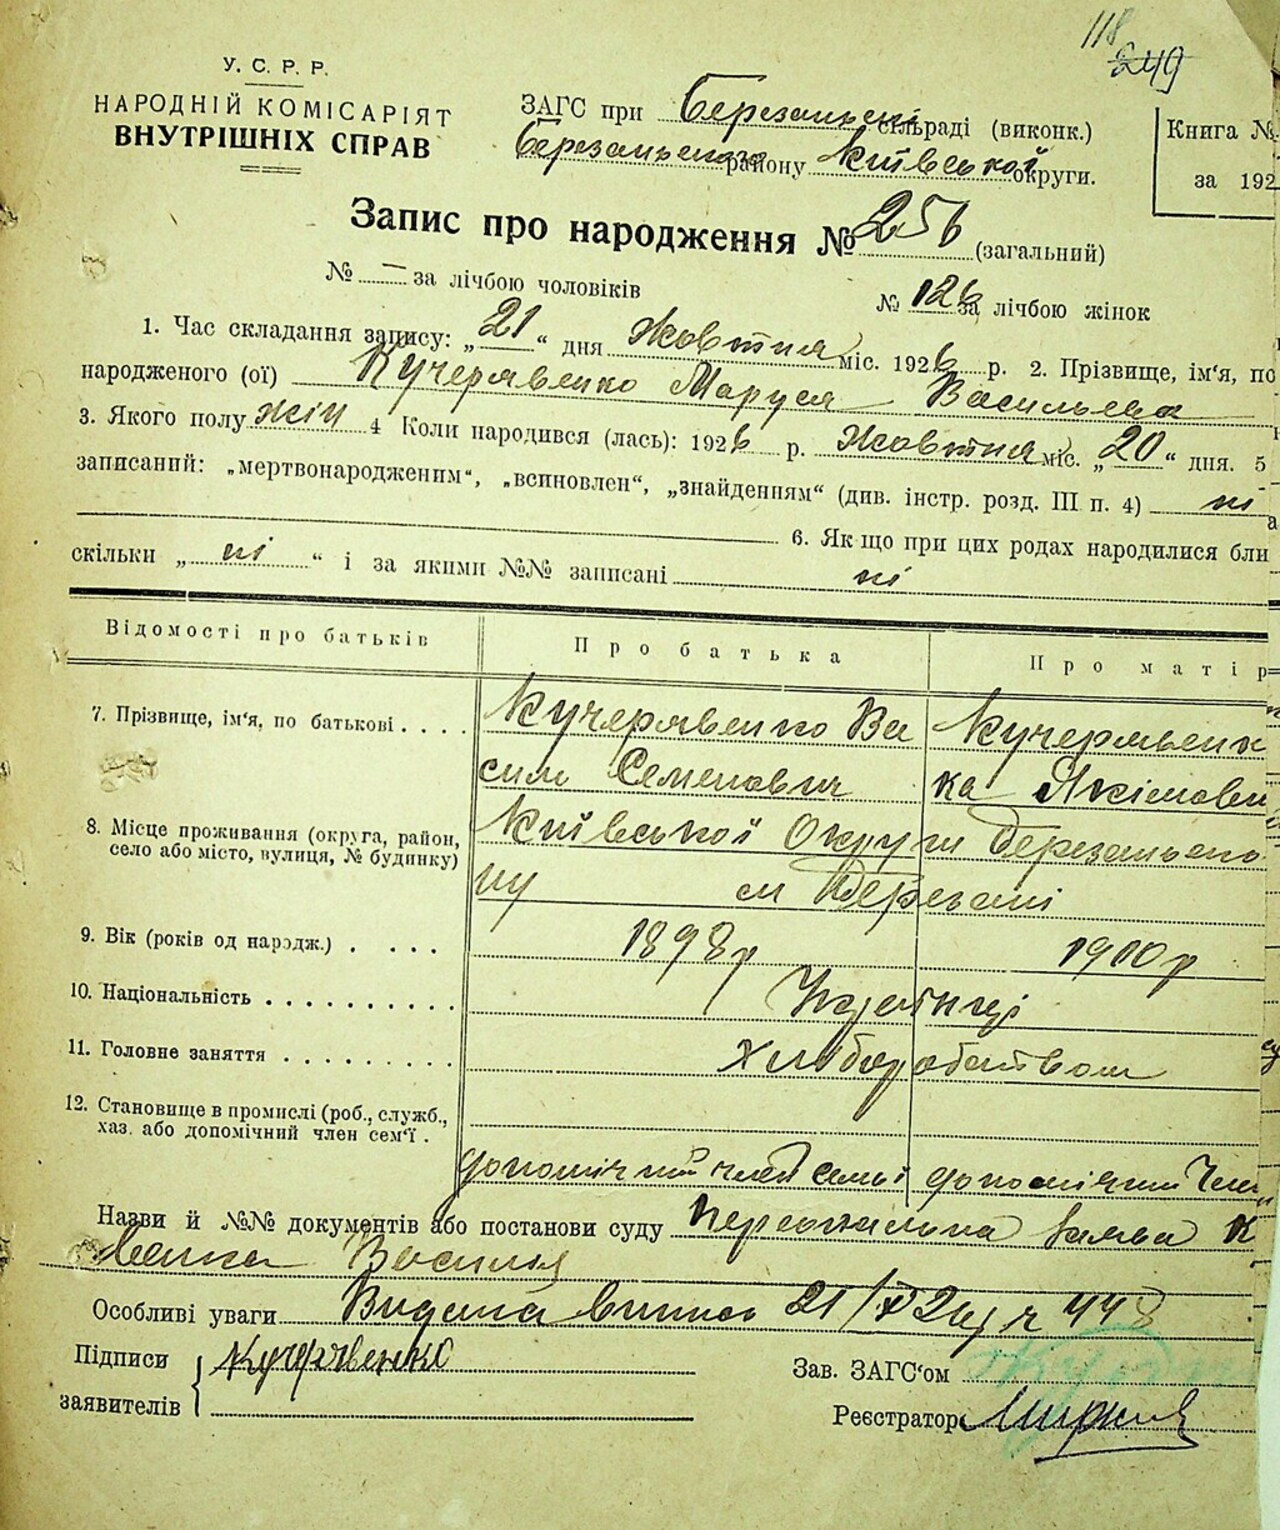 118
249
У. С. Р. Р.
НАРОДНІЙ КОМІСАРІЯТ
ВНУТРІШНІХ СПРАВ
ЗАГС при Березанській сільраді (виконк.)
Березанського району Київської округи.
Книга №
за 192
Запис про народження № 256 (загальний)
№ — за лічбою чоловіків
№ 126 за лічбою жінок
1. Час складання запису: „21“ дня Жовтня міс. 1926 р. 2. Прізвище, ім‘я, по
народженого (ої) Кучерявенко Маруся Васильева
3. Якого полу жін 4 Коли народився (лась): 1926 р. Жовтня міс. „20“ дня. 5
записаний: „мертвонародженим“, „всиновлен“, „знайденням“ (див. інстр. розд. III п. 4) ні
6. Якщо при цих родах народилися бли
скільки „ні“ і за якими №№ записані ні
Відомості про батьків
Про батька
Про матір
7. Прізвище, ім‘я, по батькові . . . .
Кучерявенко Ва
силь Семенович
Кучерявенк
ка Якімовн
8. Місце проживання (округа, район,
село або місто, вулиця, № будинку)
Київської Округи Березансько
ну м Березані
9. Вік (років од народж.) . . . .
1898р
1900р
10. Національність . . . . . . . . . .
Українці
11. Головне заняття . . . . . . . . .
хліборобством
12. Становище в промислі (роб., служб.,
хаз. або допомічний член сем‘ї .
допомічний член семьі
допомічний Член
Назви й №№ документів або постанови суду Персональна заява К
венка Василія
Особливі уваги Видана випись 21/X 26р ч 448
Підписи
заявителів
Кучерявенко
Зав. ЗАГС‘ом
Реєстратор